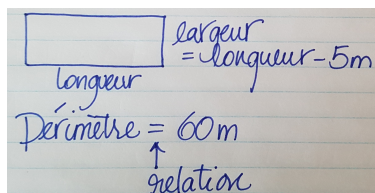 largeur
= longueur - 5m
longueur
Périmètre = 60m
relation